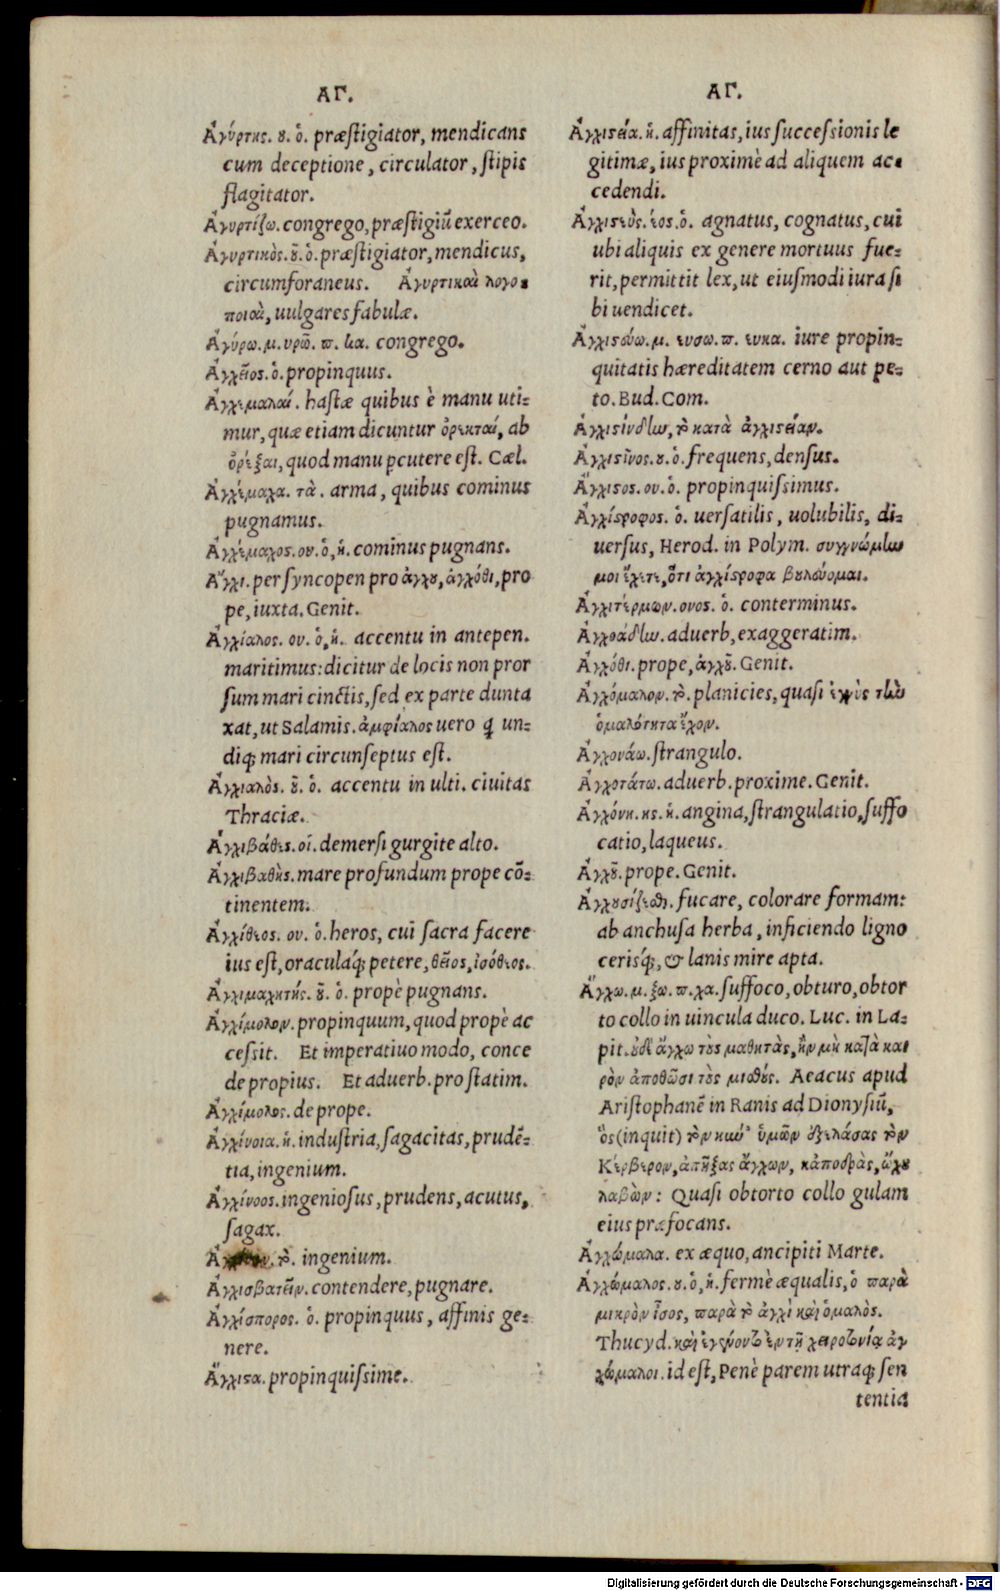 ΑΓ.
Ἀγύρτης. ȣ. ὁ. præſtigiator, mendicans
cum deceptione, circulator, ſtipis
flagitator.
Ἀγυρτίζω. congrego, præſtigiũ exerceo.
Ἀγυρτικὸς. ȣ̃. ὁ. præſtigiator, mendicus,
circumforaneus. Ἀγυρτικαὶ λογο-
ποιαὶ, uulgares fabulæ.
Ἀγύρω. μ. υρῶ. π. κα. congrego.
Ἀγχεῖος. ὁ. propinquus.
Ἀγχεμαλαί. haſtæ quibus è manu uti-
mur, quæ etiam dicuntur ὀρεκταί, ab
ὀρέξαι, quod manu ꝑcutere eſt. Cæl.
Ἀγχέμαχα. τὰ. arma, quibus cominus
pugnamus.
Ἀγχέμαχος. ου. ὁ, ἡ. cominus pugnans.
Ἄγχι. per ſyncopen pro ἀγχȣ, ἀγχόθι, pro
pe, iuxta. Genit.
Ἀγχίαλος. ου. ὁ, ἡ. accentu in antepen.
maritimus: dicitur de locis non pror
ſum mari cinctis, ſed ex parte dunta
xat, ut Salamis. ἀμφίαλος uero ꝗ un-
diqꝫ mari circunſeptus eſt.
Ἀγχιαλὸς. ȣ̃. ὁ. accentu in ulti. ciuitas
Thraciæ.
Ἀγχιβάθεις. οἱ. demerſi gurgite alto.
Ἀγχιβαθὴς. mare profundum prope cõ-
tinentem.
Ἀγχίθεος. ου. ὁ. heros, cui ſacra facere
ius eſt, oraculaꝗꝫ petere, θεῖος, ἰσόθεος.
Ἀγχιμαχητής. ȣ̃. ὁ. propè pugnans.
Ἀγχίμολον. propinquum, quod propè ac
ceſsit. Et imperatiuo modo, conce
de propius. Et aduerb. pro ſtatim.
Ἀγχίμολος. de prope.
Ἀγχίνοια. ἡ. induſtria, ſagacitas, prudẽ-
tia, ingenium.
Ἀγχίνοος. ingenioſus, prudens, acutus,
ſagax.
τὸ. ingenium.
Ἀγχισβατεῖν. contendere, pugnare.
Ἀγχίσπορος. ὁ. propinquus, affinis ge-
nere.
Ἄγχιϛα. propinquiſsime.
ΑΓ.
Ἀγχιϛεία. ἡ. affinitas, ius ſucceſsionis le
gitimæ, ius proximè ad aliquem ac-
cedendi.
Ἀγχιϛεὺς. έος. ὁ. agnatus, cognatus, cui
ubi aliquis ex genere mortuus fue-
rit, permittit lex, ut eiuſmodi iura ſi
bi uendicet.
Ἀγχιϛεύω. μ. ευσω. π. ευκα. iure propin-
quitatis hæreditatem cerno aut pe-
to. Bud. Com.
Ἀγχιϛίνδην, τὸ κατὰ ἀγχιϛείαν.
Ἀγχιϛῖνος. ȣ. ὁ. frequens, denſus.
Ἄγχιϛος. ου. ὁ. propinquiſsimus.
Ἀγχίϛροφος. ὁ. uerſatilis, uolubilis, di-
uerſus, Herod. in Polym. συγγνώμην
μοι ἔχετε, ὅτι ἀγχίϛροφα βουλεύομαι.
Ἀγχιτέρμων. ονος. ὁ. conterminus.
Ἀγχοάδην. aduerb, exaggeratim.
Ἀγχόθι. prope, ἀγχȣ̃. Genit.
Ἀγχόμαλον. τὸ. planicies, quaſi ἐγγὺς τὴν
ὁμαλότητα ἔχον.
Ἀγχονάω. ſtrangulo.
Ἀγχοτάτω. aduerb. proxime. Genit.
Ἀγχόνη. ης. ἡ. angina, ſtrangulatio, ſuffo
catio, laqueus.
Ἀγχȣ̃. prope. Genit.
Ἀγχȣσίζεσθαι. fucare, colorare formam:
ab anchuſa herba, inficiendo ligno
ceriſqꝫ, & lanis mire apta.
Ἄγχω. μ. ξω. π. χα. ſuffoco, obturo, obtor
to collo in uincula duco. Luc. in La-
pit. ȣδὲ ἄγχω τȣς μαθητὰς, ἢν μὴ κατὰ και
ρὸν ἀποδῶσι τȣς μισθȣς. Aeacus apud
Ariſtophanẽ in Ranis ad Dionyſiũ,
ὃς (inquit) τὸν κύν' ὑμῶν ἐξελάσας τὸν
Κέρβερον, ἀπῇξας ἄγχων, κἀποδρὰς, ᾤχȣ
λαβὼν: Quaſi obtorto collo gulam
eius præfocans.
Ἀγχώμαλα. ex æquo, ancipiti Marte.
Ἀγχώμαλος. ȣ. ὁ, ἡ. fermè æqualis, ὁ παρὰ
μικρὸν ἶσος, παρὰ τὸ ἀγχὶ καὶ ὁμαλὸς.
Thucyd. καὶ ἐγένοντο ἐν τῇ χειροτονίᾳ ἀγ
χώμαλοι. id eſt, Penè parem utraqꝫ ſen
tentia
Digitalisierung gefördert durch die Deutsche Forschungsgemeinschaft - DFG